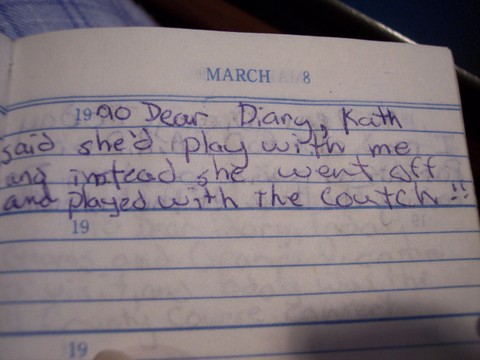 MARCH 8
1990 Dear Diary, Kath
said she'd play with me
and instead she went off
and played with the Coutch!!
19
19